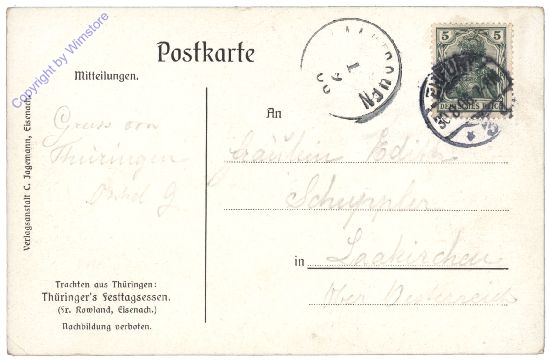 Copyright by Wimstore
Postkarte
Mitteilungen.
An
in
5 5
DEUTSCHES REICH
ERFURT
Gruss von
Thüringen
Fräulein Edith
Schuppler
Laakirchen
Ober Oesterreich
Verlagsanstalt C. Jagemann, Eisenach.
Trachten aus Thüringen:
Thüringer's Festtagsessen.
(Fr. Rowland, Eisenach.)
Nachbildung verboten.